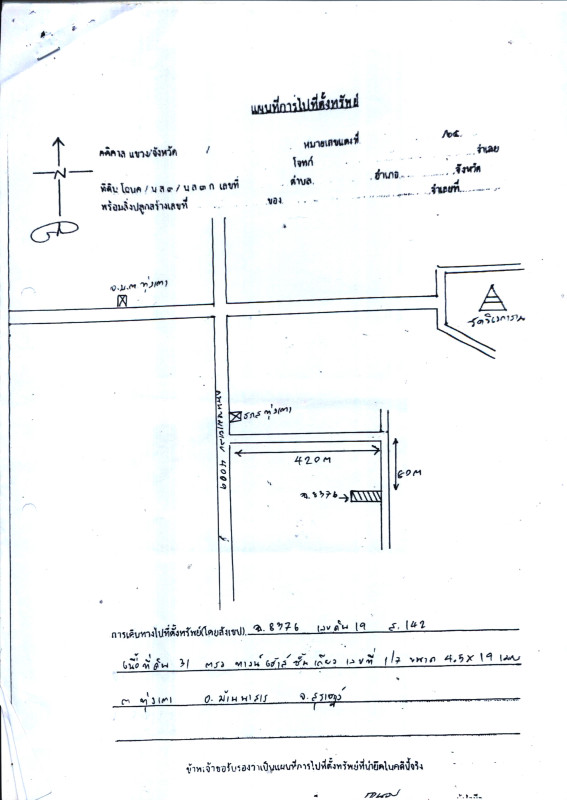 แผนที่การไปที่ตั้งทรัพย์
คดีศาล แขวง/จังหวัด / หมายเลขแดงที่ /๒๕
โจทก์ จำเลย
ที่ดิน โฉนด / น ส ๓ / น ส ๓ ก เลขที่ ตำบล อำเภอ จังหวัด
พร้อมสิ่งปลูกสร้างเลขที่ ของ จำเลยที่
N
ทุ่งเตา
ทุ่งเตา
4009
420 m
80 m
ฉ. 8376
การเดินทางไปที่ตั้งทรัพย์(โดยสังเขป) ฉ. 8376 เลขดิน 19 ส. 142
เนื้อที่ดิน 31 ตรว ทาวน์เฮ้าส์ชั้นเดียว เลขที่ ขนาด 4.5 x 19 เมตร
ต ทุ่งเตา อ. บ้านนาสาร จ. สุราษฎร์
ข้าพเจ้าขอรับรองว่าเป็นแผนที่การไปที่ตั้งทรัพย์ที่นำยึดในคดีนี้จริง